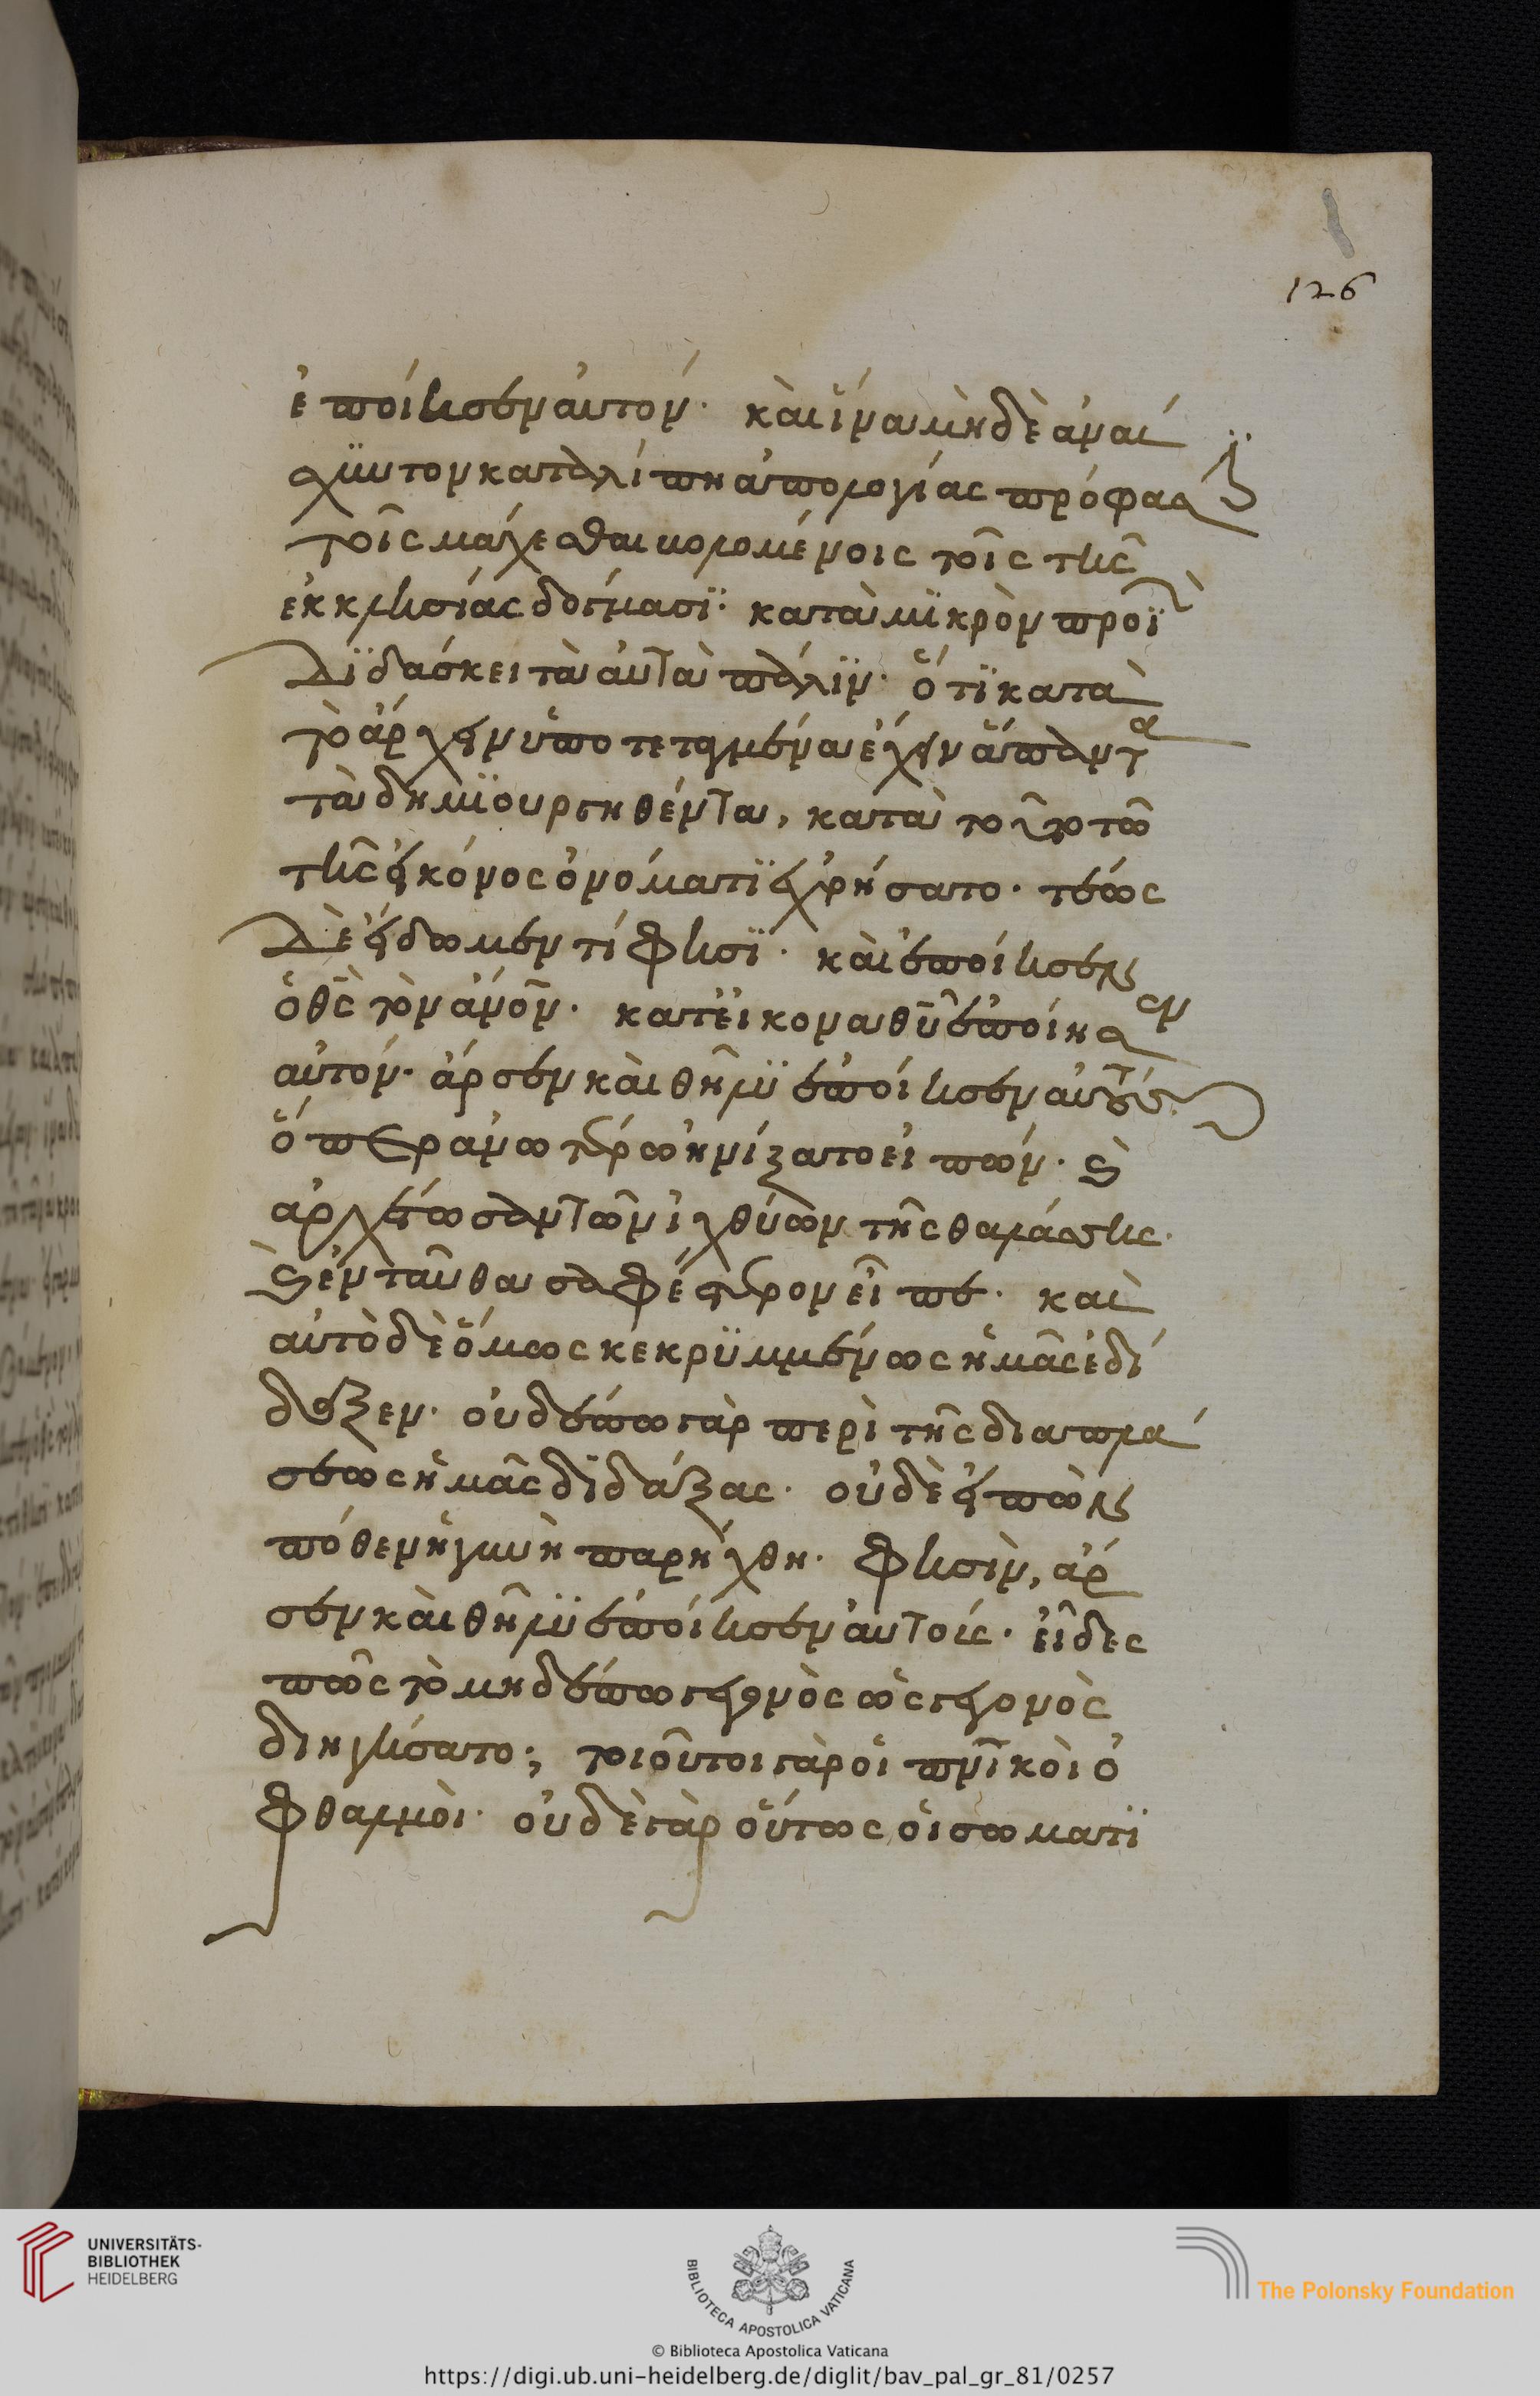 126
ἐποίησεν αὐτόν· καὶ ἵνα μὴ δὲ ἀναί
σχϋντον καταλίπη ἀπολογίας πρόφασϊν
τοῖς μάχεσθαι βουλομένοις τοῖς τῆς
ἐκκλησίας δόγμασϊ· κατὰ μϊκρὸν προϊὼν
Δϊδάσκει τὰ αὐτὰ πάλϊν· ὅτϊ κατὰ
τὸ ἄρχειν ὑποτεταγμένα ἔχειν ἅπαντα
τὰ δημϊουργηθέντα, κατὰ τοῦτο τῶ
τῆς εἰκόνος ὀνόματϊ ἐχρήσατο· τέως
Δὲ εἴδωμεν τί φησϊ· καὶ ἐποίησεν
ὁ θς τὸν ἄνον· κατ' εἰκόνα θυ ἐποίησεν
αὐτόν· ἄρσεν καὶ θῆλϋ ἐποίησεν αὐτούς·
ὅπερ ἀνωτέρω ἠνίξατο εἰπών· καὶ
ἀρχέτωσαν τῶν ἰχθύων τῆς θαλάσσης·
καὶ ἐνταῦθα σαφέστερον εἶπε· καὶ
αὐτὸ δὲ ὅμως κεκρϋμμένως ἡμᾶς ἐδί
δαξεν· οὐδέπω γὰρ περὶ τῆς διαπλά
σεως ἡμᾶς δϊδάξας· οὐδὲ εἰπὼν
πόθεν ἡ γυνὴ παρήχθη· φησὶν, ἄρ
σεν καὶ θῆλϋ ἐποίησεν αὐτούς· εἶδες
πῶς τὸ μηδέπω γεγονὸς ὡς γεγονὸς
διηγήσατο; τοιοῦτοι γὰρ οἱ πνικοὶ ὀ
φθαλμοὶ· οὐδὲ γὰρ οὕτως οἱ σωματϊ
UNIVERSITÄTS-
BIBLIOTHEK
HEIDELBERG
BIBLIOTECA APOSTOLICA VATICANA
The Polonsky Foundation
© Biblioteca Apostolica Vaticana
https://digi.ub.uni-heidelberg.de/diglit/bav_pal_gr_81/0257